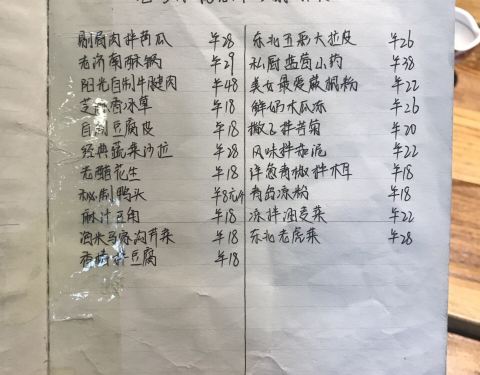 刷唇肉拌黄瓜 ¥28
老济南酥锅 ¥29
阳光自制牛腱肉 ¥48
芝麻香冰草 ¥18
自制豆腐皮 ¥18
经典蔬菜沙拉 ¥28
老醋花生 ¥18
秘制鸭头 ¥8元/个
麻汁豆角 ¥18
淘米马家沟芹菜 ¥18
香椿拌豆腐 ¥18
东北五彩大拉皮 ¥26
私厨蓝莓山药 ¥28
美女最爱蕨根粉 ¥22
鲜奶木瓜冻 ¥26
撒乙拌苦菊 ¥20
风味拌茄泥 ¥22
洋葱青椒拌木耳 ¥18
青岛凉粉 ¥18
凉拌油麦菜 ¥22
东北老虎菜 ¥28